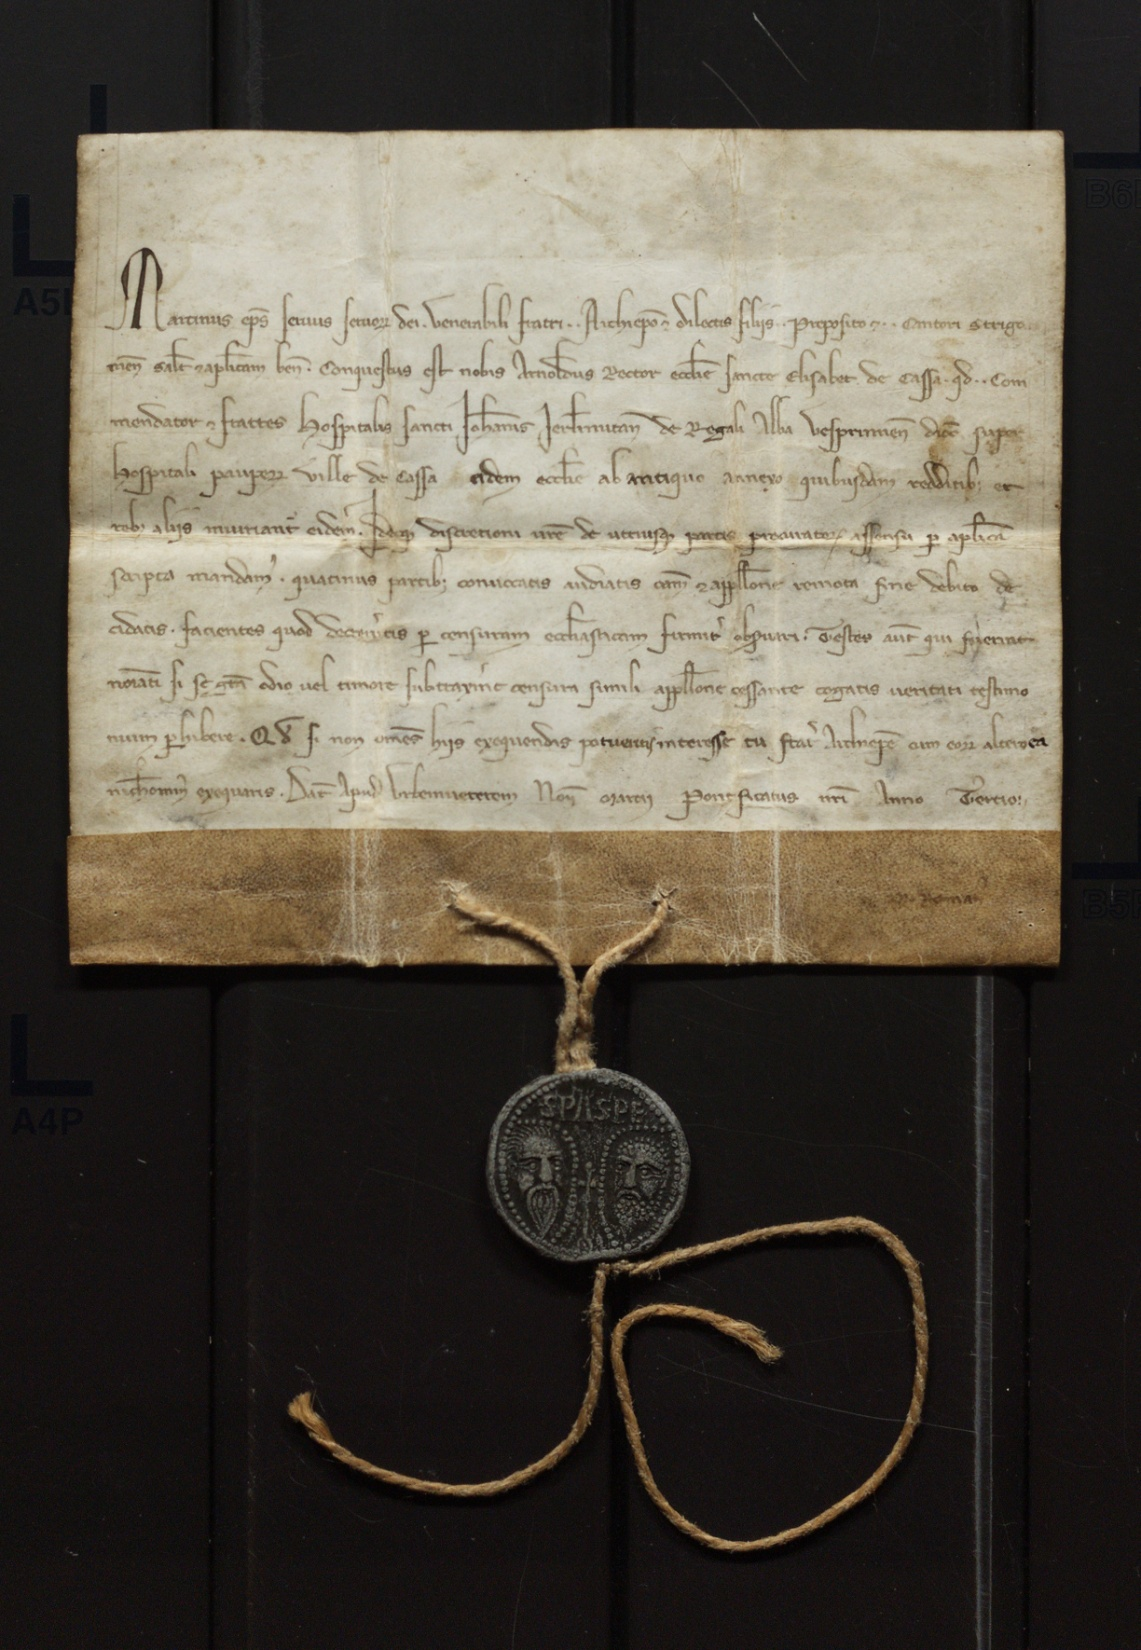 Martinus ep̄s servus servoꝝ dei. Venerabili fratri . . Archiep̄o ⁊ dilectis filiis . . Preposito ⁊ . . Cantori Strigo
nien̄ salt̄ ⁊ aplīcam ben̄. Conquestus est nobis Arnoldus Rector ecclīe sancte Elisabet de Cassa. qd̄ . . Com
mendator ⁊ fratres Hospitalis sancti Johannis Jerlimitan̄ de Regali Alba Vesprimien̄ dioc̄ super
Hospitali pauperꝝ ville de Cassa eidem ecclīe ab antiquo annexo quibusdam redditibꝫ et
rebꝫ aliis iniuriant̄ eidem̄. Ideoqꝫ discretioni vr̄e de utriusqꝫ partis procuratoꝝ assensu ꝑ aplīca
scripta mandam̄. quatinus partibꝫ convocatis audiatis cam̄ ⁊ appellōne remota fine debito de
cidatis. facientes quod decrev̄itis ꝑ censuram ecclīasticam firmit̄ obẜvari. Testes aut̄ qui fūerint
noīati si se grā odio vel timore subtraxīnt censura simili appellōne cessante cogatis veritati testimo
nium ꝑhibere. Qđ si non om̄es hiis exequendis potueritis interesse tu frat̄ Archiep̄e cum eoꝝ altero ea
nichōmin̄ exequaris. Dat̄ Apud Urbemveterem Non̄ Martii Pontificatus nr̄i Anno Tertio.
SPASPE
A4P